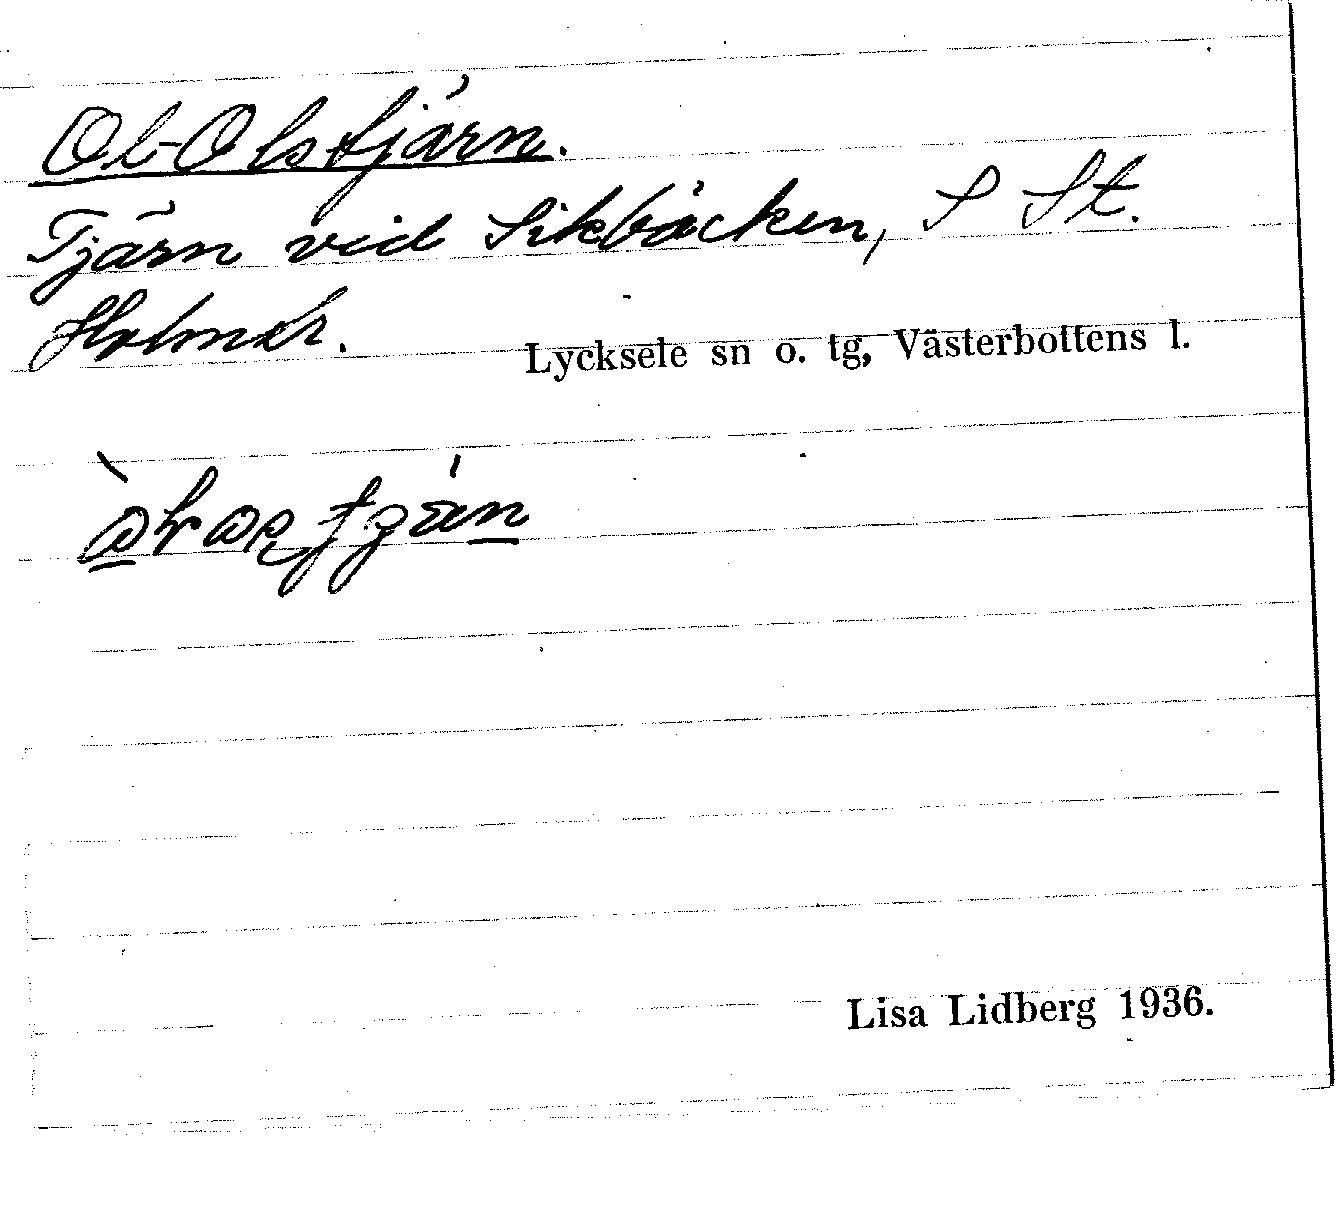 Ol-Olstjärn.
Tjärn vid Sikbäcken, S St.
Holmtr.
Lycksele sn o. tg, Västerbottens l.
Lisa Lidberg 1936.